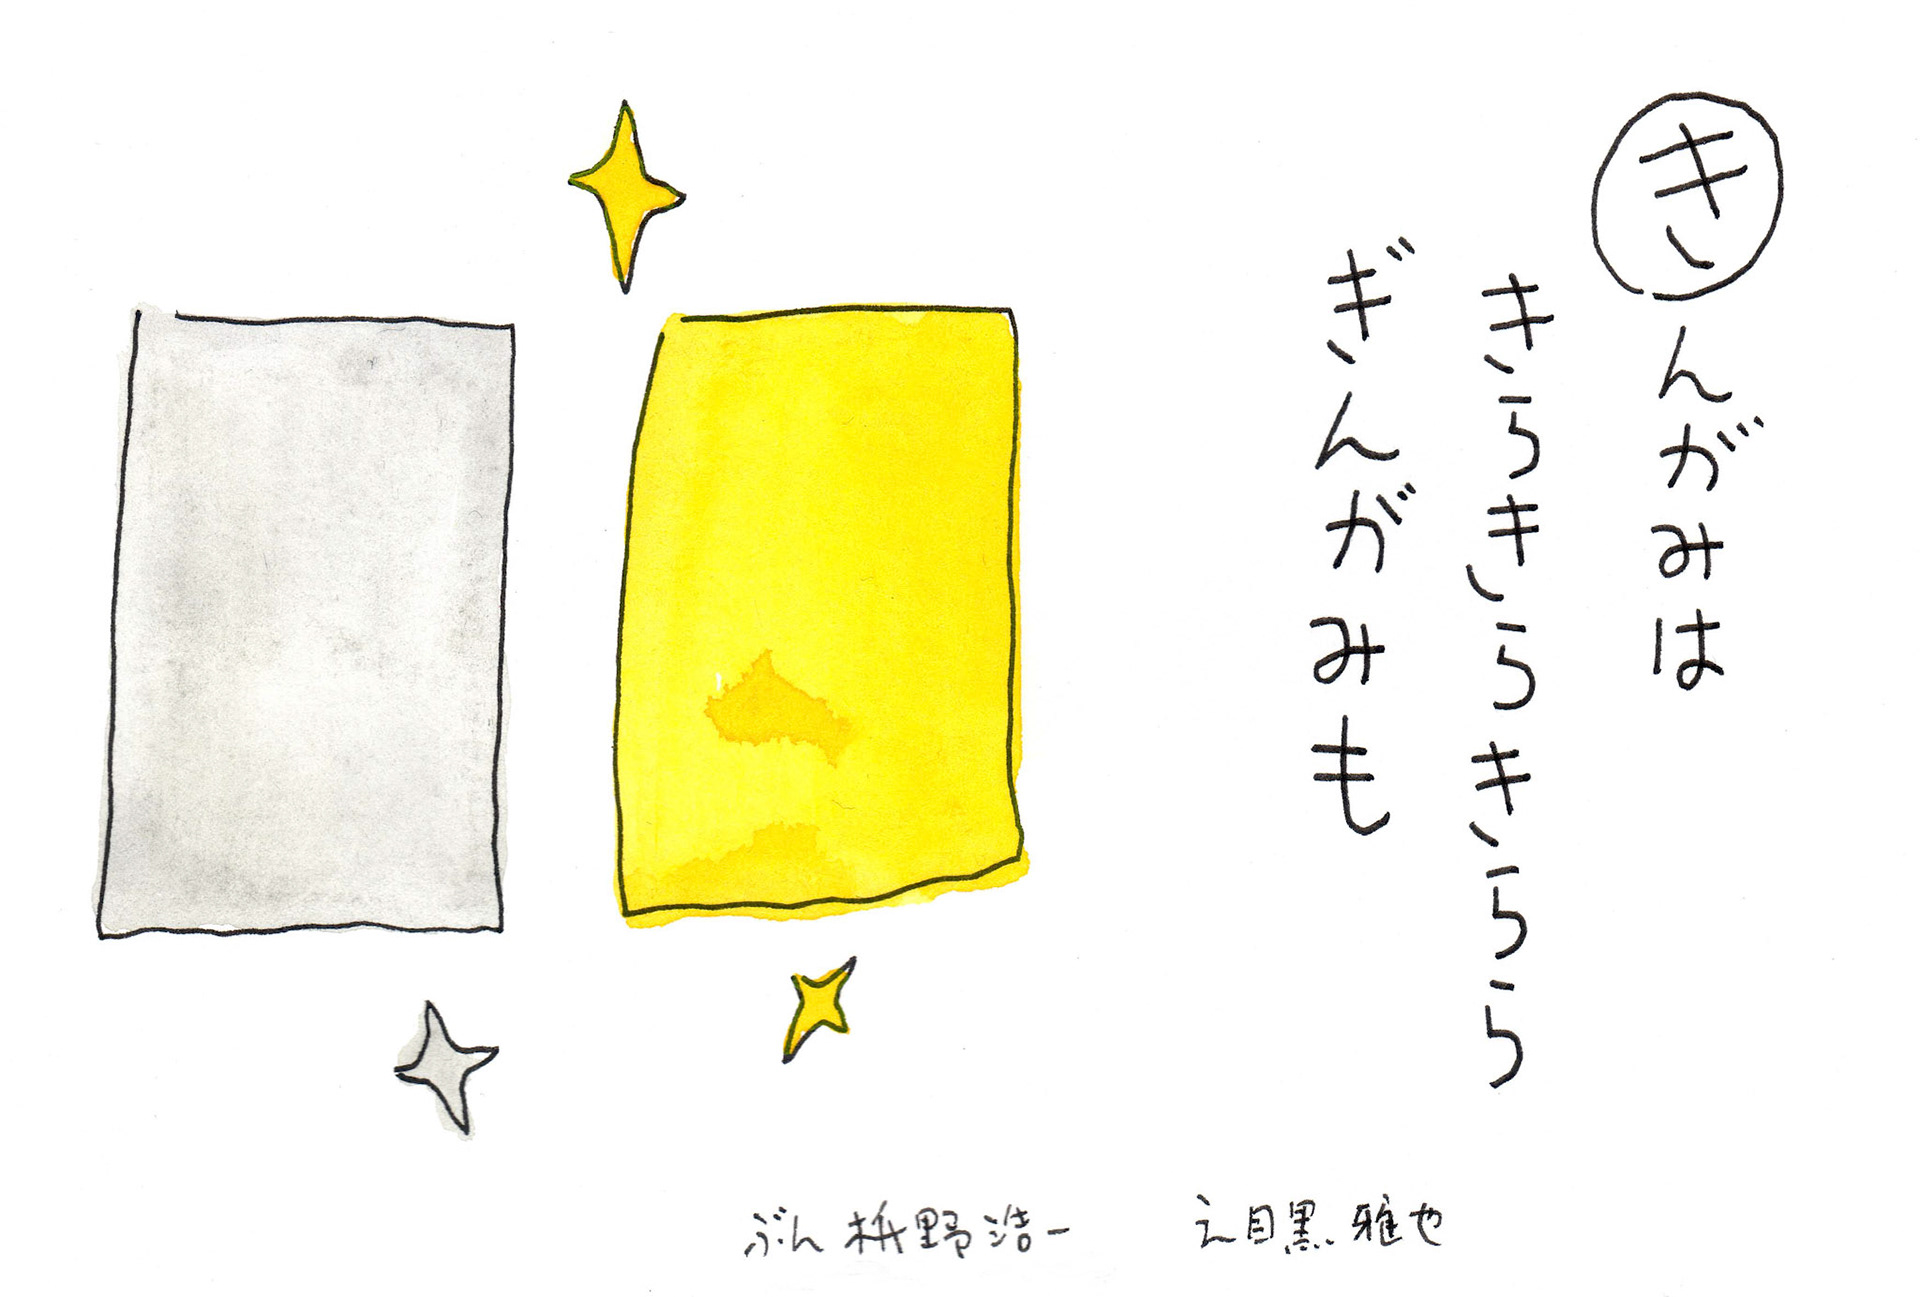 きんがみは
きらきらきらら
ぎんがみも
ぶん 枡野浩一
え 目黒雅也